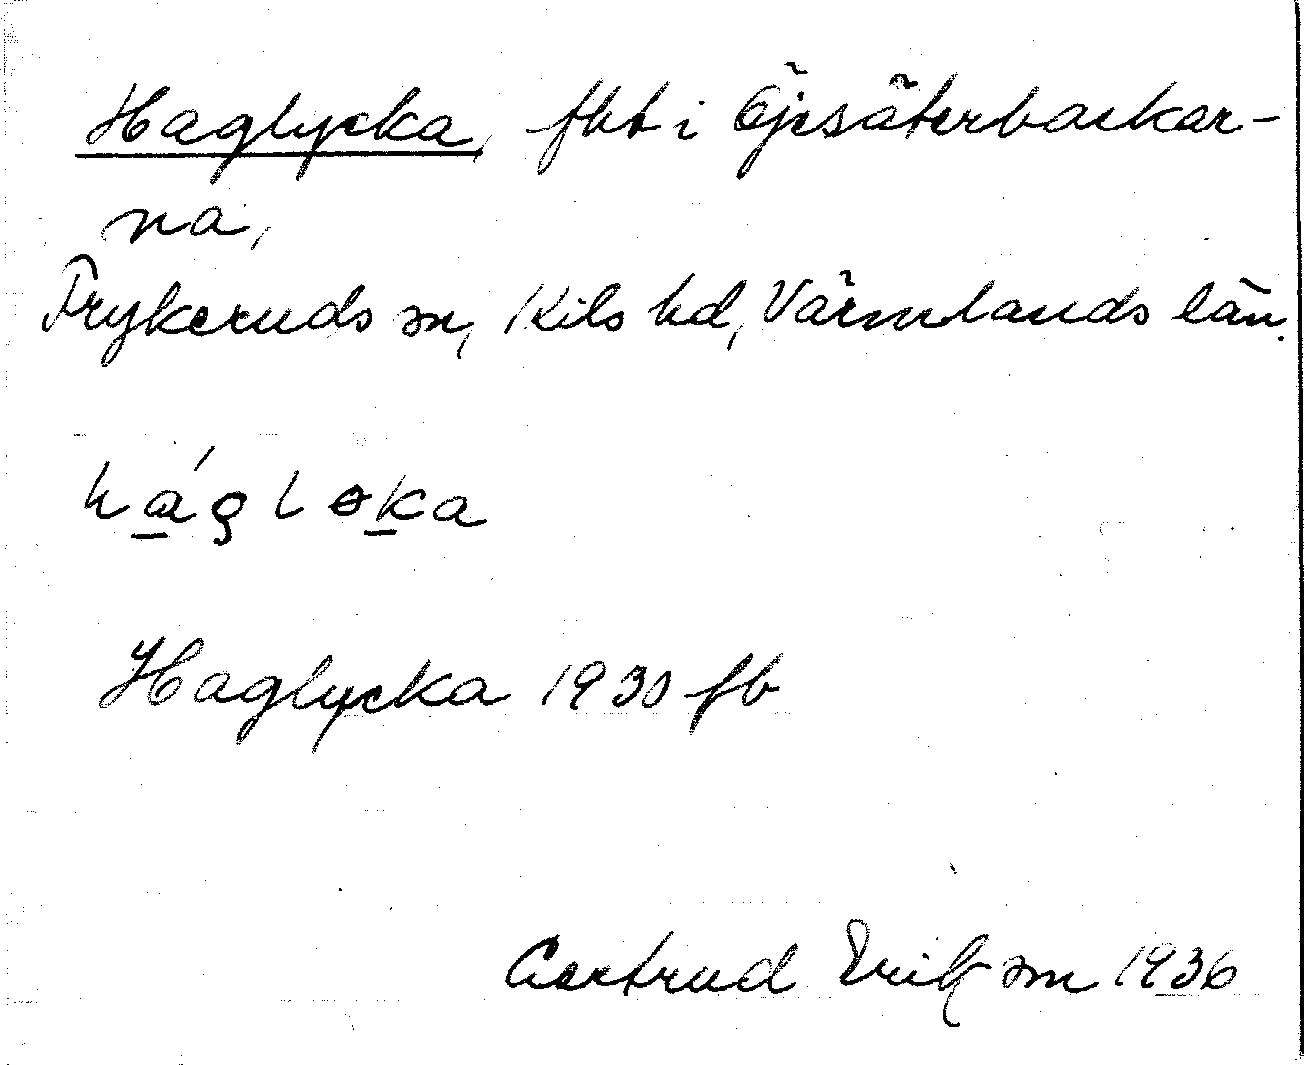 Haglycka, fbt i Öjesäterbackar-
na,
Frykeruds sn, Kils hd, Värmlands län.
hágløka
Haglycka 1930 fb
Gertrud Eriksson 1936